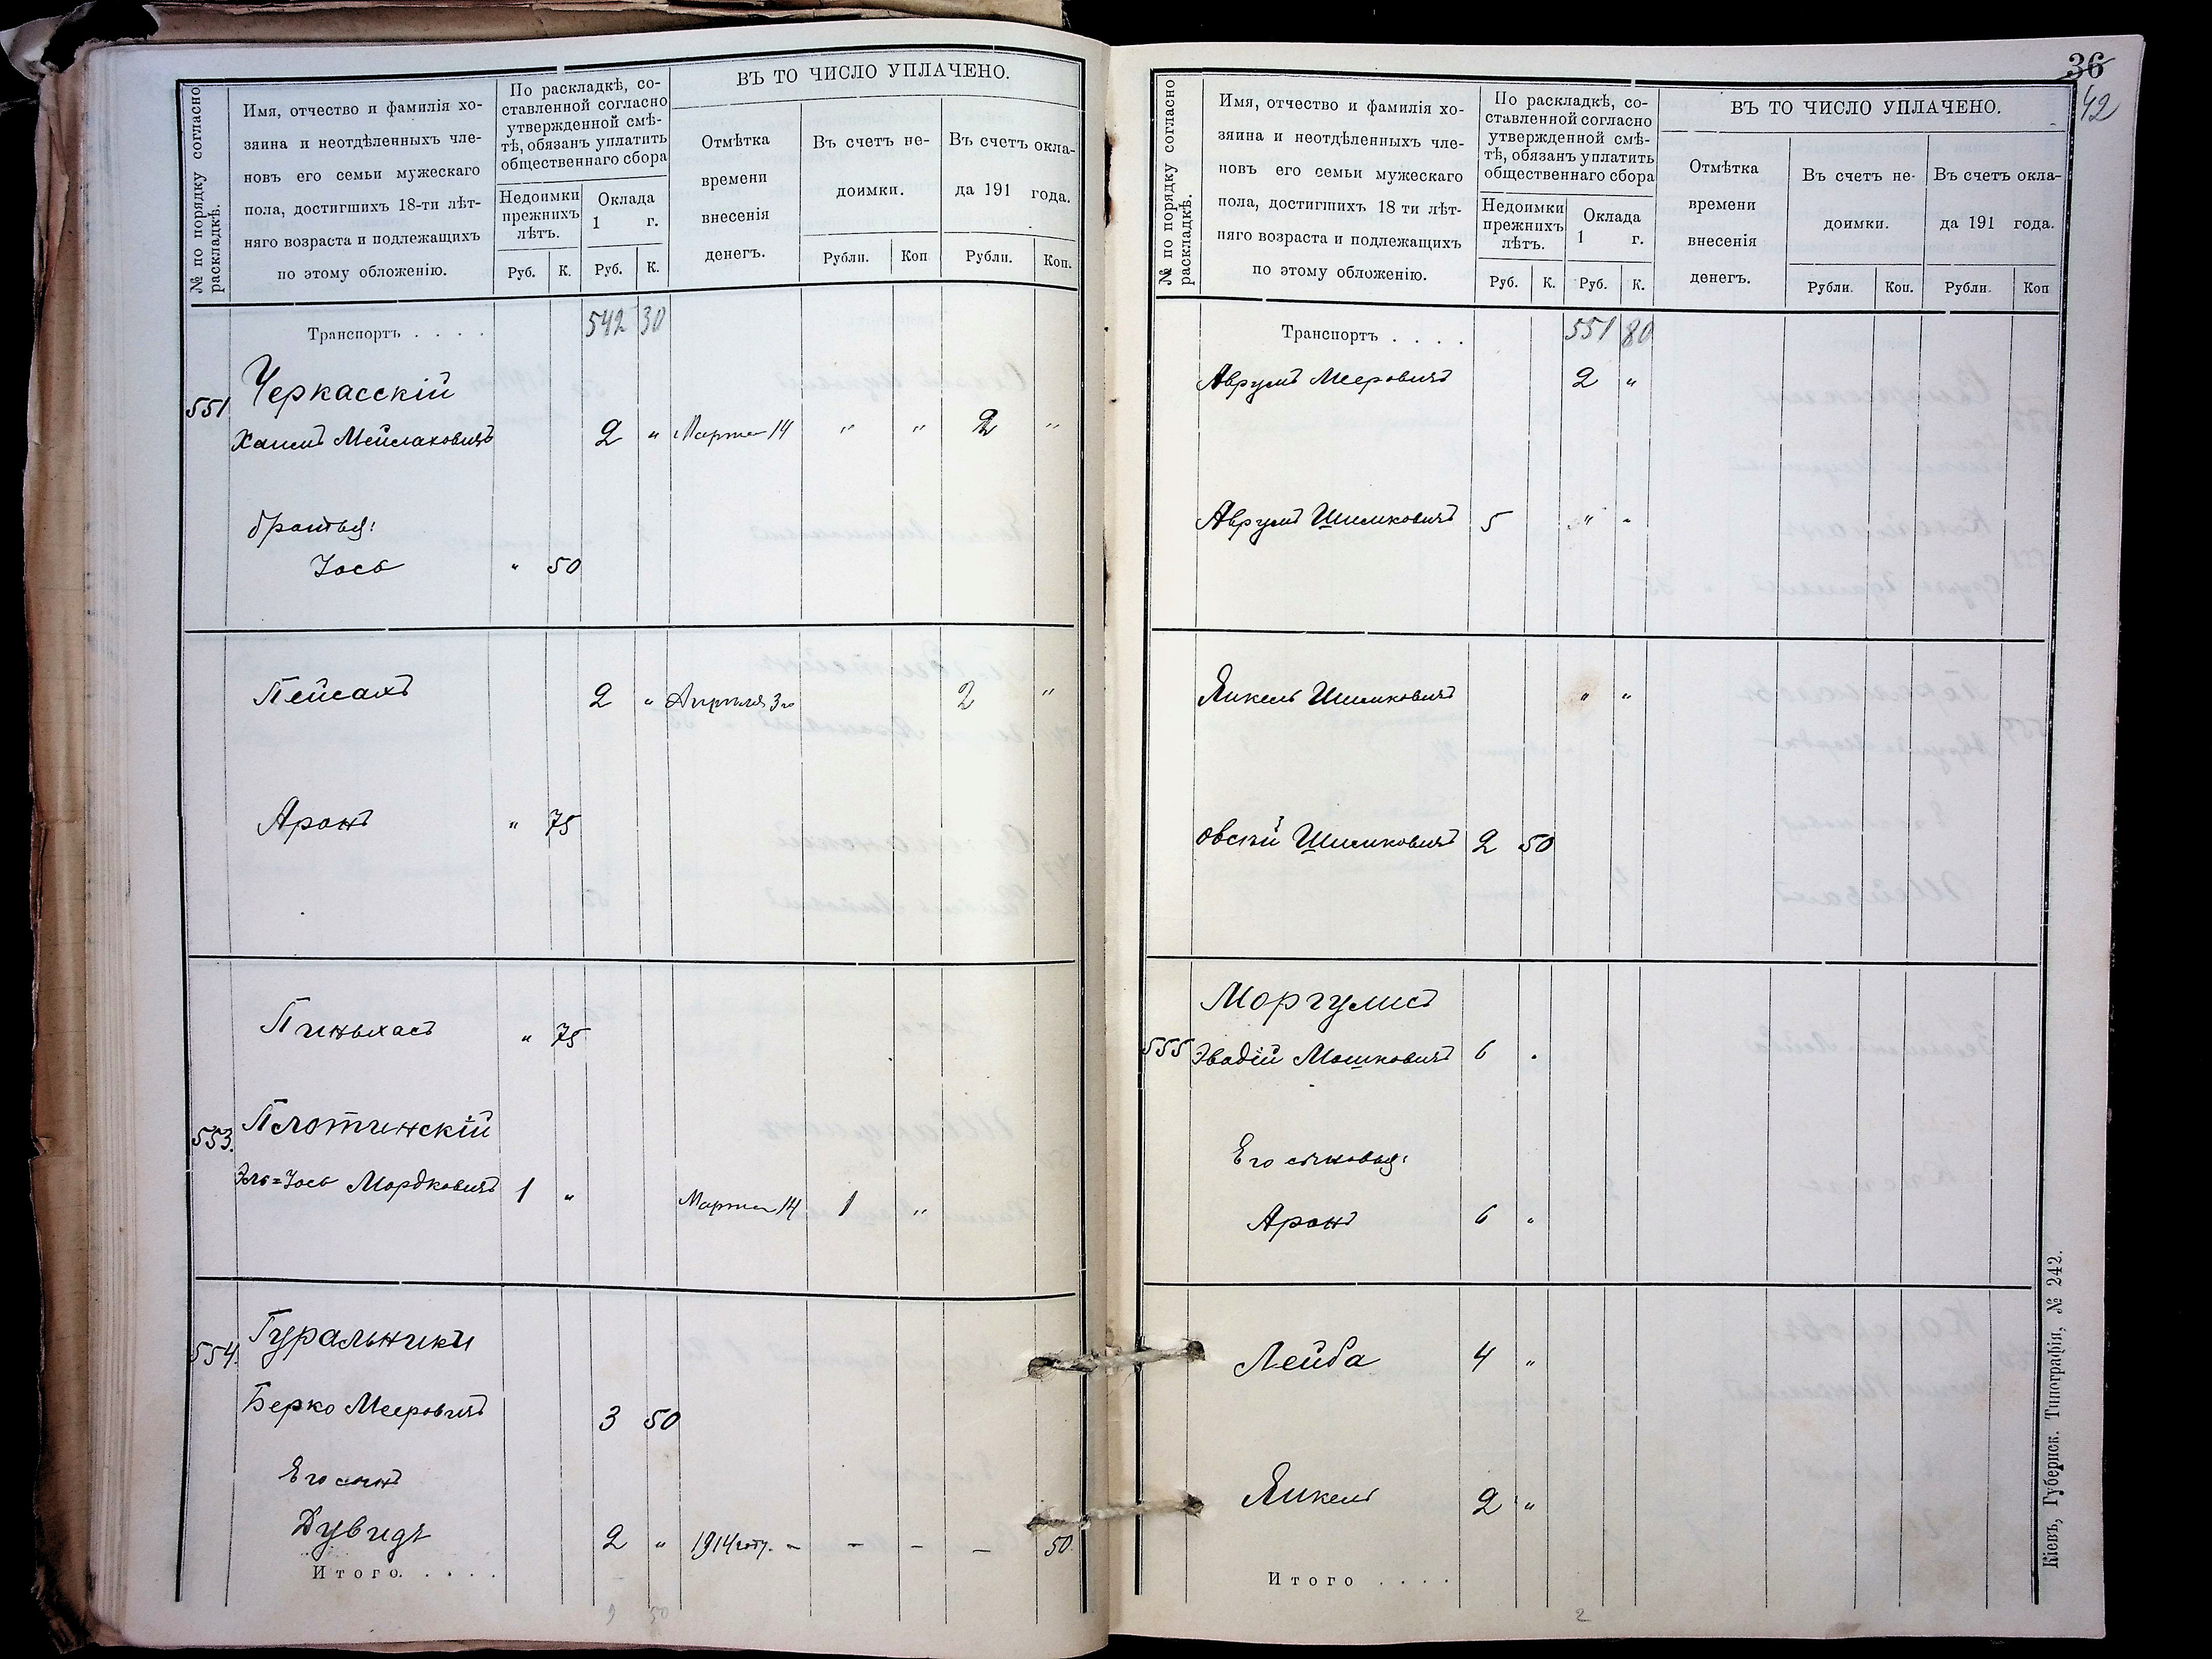 № по порядку согласно раскладкѣ.
Имя, отчество и фамилія хо-
зяина и неотдѣленныхъ чле-
новъ его семьи мужескаго
пола, достигшихъ 18-ти лѣт-
няго возраста и подлежащихъ
по этому обложенію.
По раскладкѣ, со-
ставленной согласно
утвержденной смѣ-
тѣ, обязанъ уплатить
общественнаго сбора
Недоимки
прежнихъ
лѣтъ.
Оклада
1 г.
Руб. К. Руб. К.
ВЪ ТО ЧИСЛО УПЛАЧЕНО.
Отмѣтка
времени
внесенія
денегъ.
Въ счетъ не-
доимки.
Рубли. Коп
Въ счетъ окла-
да 191 года.
Рубли. Коп.
Транспортъ . . . . 542 30
551 Черкасскій
Хаимъ Мейлаховичъ 2 „ Марта 14 „ „ 2 „
братья:
Іось „ 50
Пейсахъ 2 „ Апрѣля 3го 2 „
Аронъ „ 75
Пиньхасъ „ 75
553. Плотинскій
Эль=Іось Мордковичъ 1 „ Марта 14 1 „
554. Гуральники
Берко Мееровичъ 3 50
Его сынъ
Дувидъ 2 „ 1914 - - - - 50
Итого. . . . .
9 50
36
42
№ по порядку согласно раскладкѣ.
Имя, отчество и фамилія хо-
зяина и неотдѣленныхъ чле-
новъ его семьи мужескаго
пола, достигшихъ 18 ти лѣт-
няго возраста и подлежащихъ
по этому обложенію.
По раскладкѣ, со-
ставленной согласно
утвержденной смѣ-
тѣ, обязанъ уплатить
общественнаго сбора
Недоимки
прежнихъ
лѣтъ.
Оклада
1 г.
Руб. К. Руб. К.
ВЪ ТО ЧИСЛО УПЛАЧЕНО.
Отмѣтка
времени
внесенія
денегъ.
Въ счетъ не-
доимки.
Рубли. Коп.
Въ счетъ окла-
да 191 года.
Рубли. Коп
Транспортъ . . . . 551 80
Аврумъ Мееровичъ 2 „
Аврумъ Шимковичъ 5 „ „
Янкель Шимковичъ „ „
Овсій Шимковичъ 2 50
Моргулисъ
555 Эвадій Мошковичъ 6 .
Его сыновья:
Аронъ 6 „
Лейба 4 „
Янкель 2 „
Итого . . . .
2
Кіевъ, Губернск. Типографія, № 242.